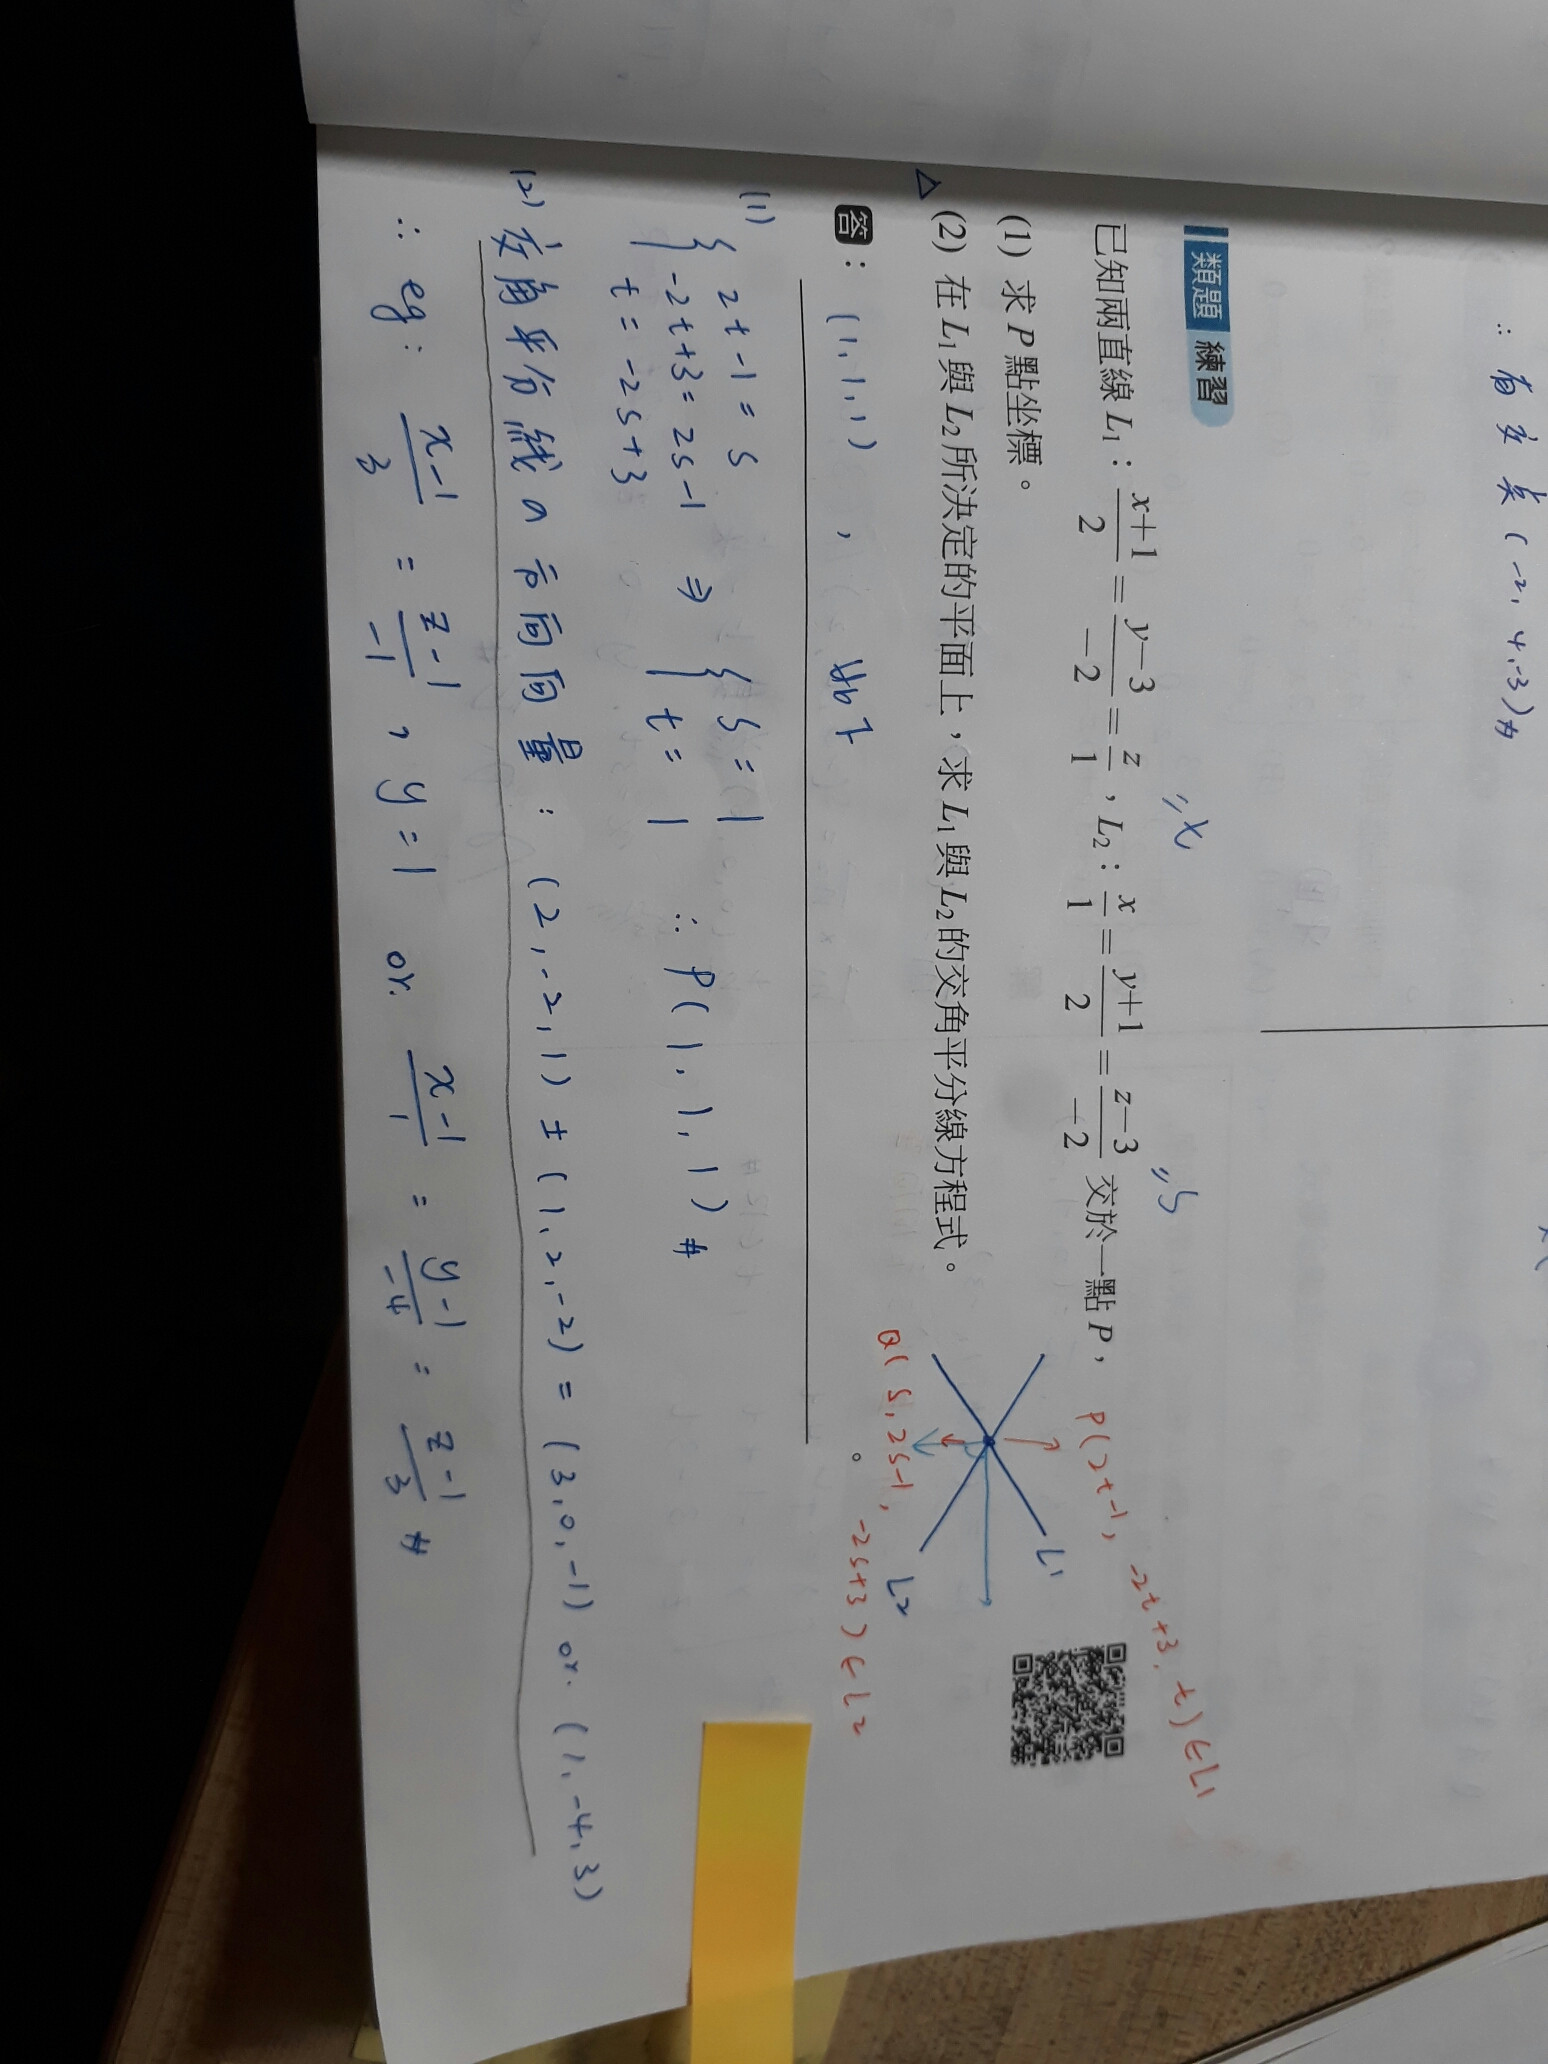 ∴ 有交点 (-2, 4, -3) #
類題 練習
已知兩直線 L₁：(x+1)/2 = (y-3)/-2 = z/1，L₂：x/1 = (y+1)/2 = (z-3)/-2 交於一點 P，
P(2t-1, -2t+3, t) ∈ L1
(1) 求 P 點坐標。
△ (2) 在 L₁ 與 L₂ 所決定的平面上，求 L₁ 與 L₂ 的交角平分線方程式。
L1
L2
Q(s, 2s-1, -2s+3) ∈ L2
答： (1, 1, 1) , 如下 。
(1) { 2t-1 = s
-2t+3 = 2s-1 ⇒ { s = 1
t = -2s+3 t = 1 ∴ P(1, 1, 1) #
(2) 交角平分線の方向向量 : (2, -2, 1) ± (1, 2, -2) = (3, 0, -1) or. (1, -4, 3)
∴ eg : (x-1)/3 = (z-1)/-1 , y = 1 or. (x-1)/1 = (y-1)/-4 = (z-1)/3 #